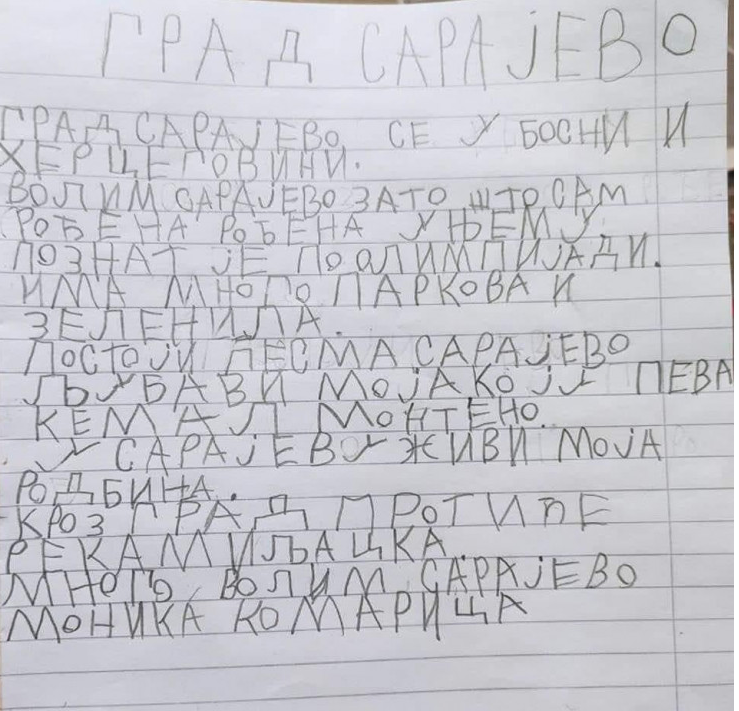 ГРАД САРАЈЕВО
ГРАД САРАЈЕВО СЕ У БОСНИ И
ХЕРЦЕГОВИНИ.
ВОЛИМ САРАЈЕВО ЗАТО ШТО САМ
РОЂЕНА РОЂЕНА У ЊЕМУ
ПОЗНАТ ЈЕ ПО ОЛИМПИЈАДИ.
ИМА МНОГО ПАРКОВА И
ЗЕЛЕНИЛА.
ПОСТОЈИ ПЕСМА САРАЈЕВО
ЉУБАВИ МОЈА КОЈУ ПЕВА
КЕМАЛ МОНТЕНО.
У САРАЈЕВУ ЖИВИ МОЈА
РОДБИНА.
КРОЗ ГРАД ПРОТИЧЕ
РЕКА МИЉАЦКА
МНОГО ВОЛИМ САРАЈЕВО
МОНИКА КОМАРИЦА